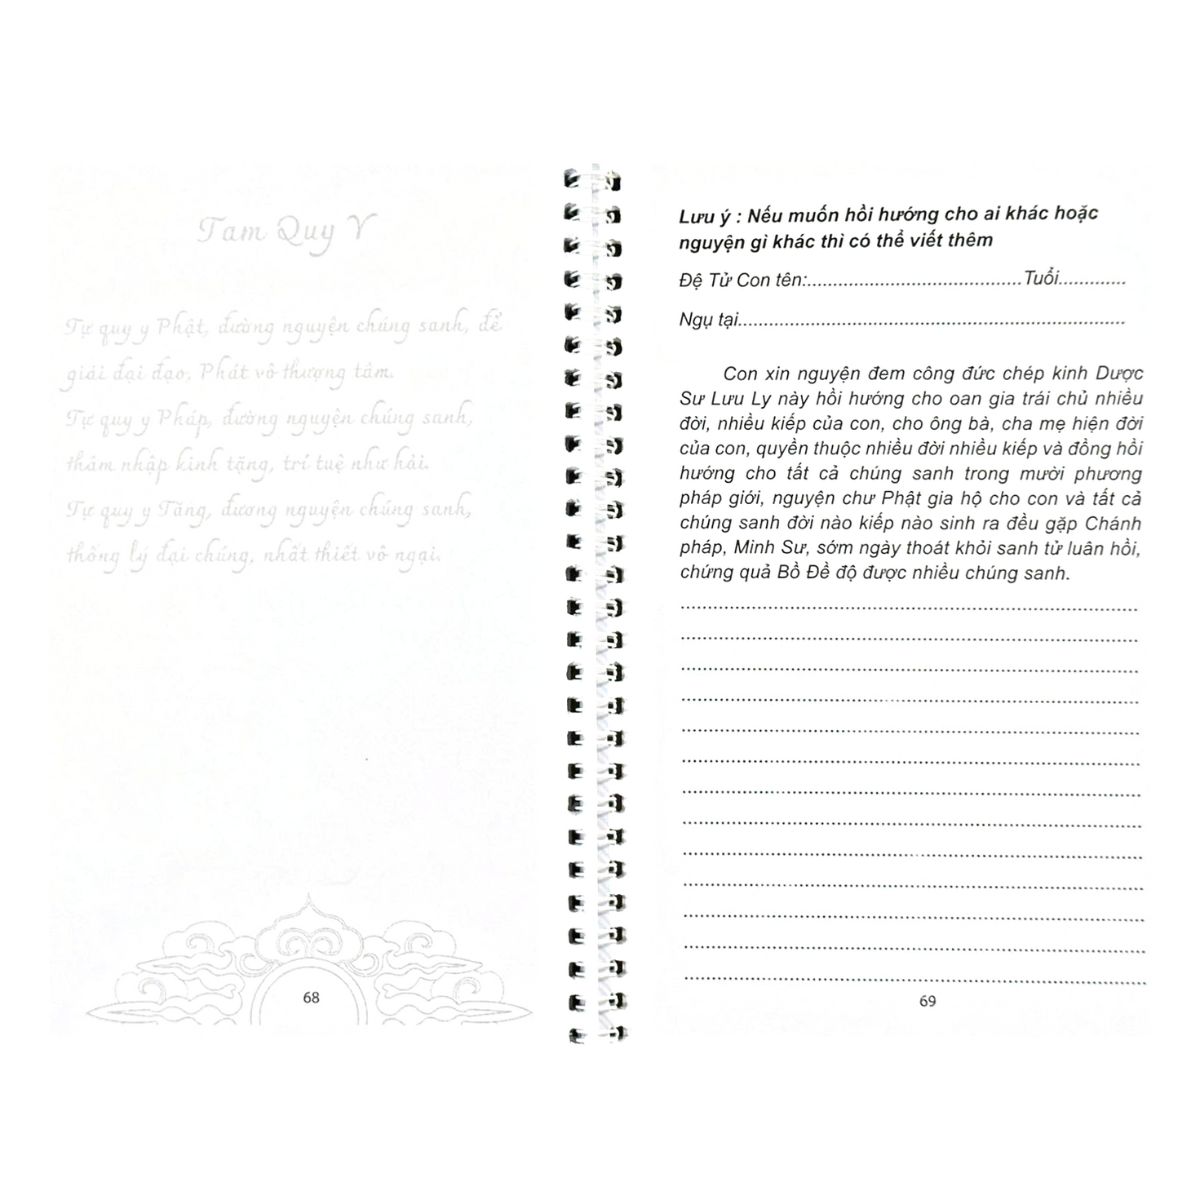 Tam Quy Y
Tự quy y Phật, đương nguyện chúng sanh, để
giải đại đạo, Phát vô thượng tâm.
Tự quy y Pháp, đương nguyện chúng sanh,
thâm nhập kinh tặng, trí tuệ như hải.
Tự quy y Tăng, đương nguyện chúng sanh,
thống lý đại chúng, nhất thiết vô ngại.
68
Lưu ý : Nếu muốn hồi hướng cho ai khác hoặc
nguyện gì khác thì có thể viết thêm
Đệ Tử Con tên:..........................................Tuổi.............
Ngụ tại...........................................................................
Con xin nguyện đem công đức chép kinh Dược
Sư Lưu Ly này hồi hướng cho oan gia trái chủ nhiều
đời, nhiều kiếp của con, cho ông bà, cha mẹ hiện đời
của con, quyền thuộc nhiều đời nhiều kiếp và đồng hồi
hướng cho tất cả chúng sanh trong mười phương
pháp giới, nguyện chư Phật gia hộ cho con và tất cả
chúng sanh đời nào kiếp nào sinh ra đều gặp Chánh
pháp, Minh Sư, sớm ngày thoát khỏi sanh tử luân hồi,
chứng quả Bồ Đề độ được nhiều chúng sanh.
69